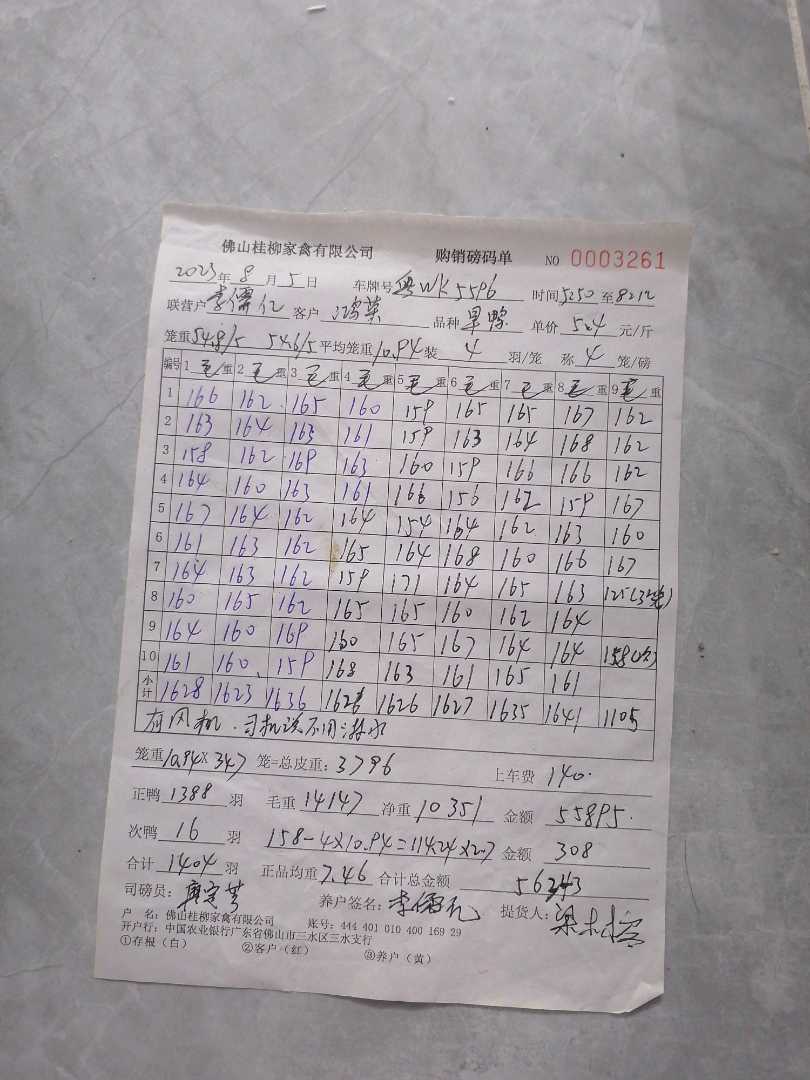 佛山桂柳家禽有限公司 购销磅码单 NO 0003261
2023年8月5日 车牌号 粤WK5596 时间 5:50 至 8:12
联营户 李儒仁 客户 鸿英 品种 单价 5.4 元/斤
笼重 54.8/5 54.6/5 平均笼重 10.94 装 4 羽/笼 称 4 笼/磅
编号 1 毛重 2 毛重 3 毛重 4 毛重 5 毛重 6 毛重 7 毛重 8 毛重 9 毛重
1 166 162 165 160 159 165 165 167 162
2 163 164 163 161 159 163 164 168 162
3 158 162 169 163 160 159 166 166 162
4 164 160 163 161 166 156 162 159 167
5 167 164 162 164 154 164 162 163 160
6 161 163 162 165 164 168 160 166 167
7 164 163 162 159 171 164 165 163 125(3笼)
8 160 165 162 165 165 160 162 164
9 164 160 169 160 165 167 164 164 158(次)
10 161 160 159 168 163 161 165 161
小计 1628 1623 1636 1626 1626 1627 1635 1641 1105
有风机.司机说不用淋水
笼重 10.94 X 347 笼=总皮重: 3796 上车费 140.
正鸭 1388 羽 毛重 14147 净重 10351 金额 55895.
次鸭 16 羽 158-4×10.94=114.24×2.7 金额 308
合计 1404 羽 正品均重 7.46 合计总金额 56343
司磅员: 养户签名: 李儒仁 提货人:
户 名: 佛山桂柳家禽有限公司 账号: 444 401 010 400 169 29
开户行: 中国农业银行广东省佛山市三水区三水支行
①存根(白) ②客户(红) ③养户(黄)